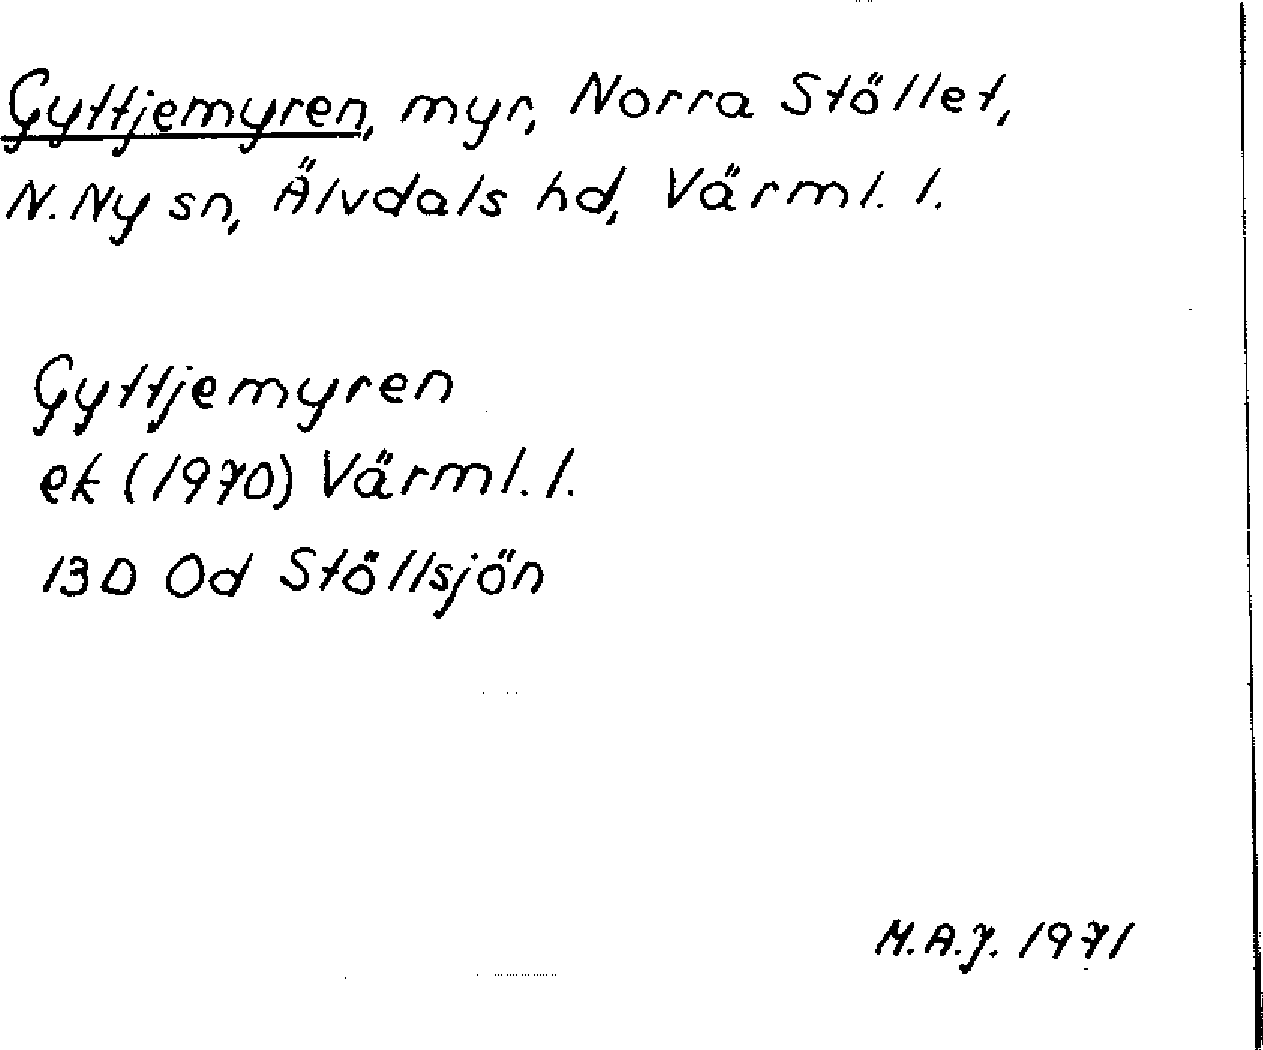 Gyttjemyren, myr, Norra Stöllet,
N. Ny sn, Älvdals hd, Värml. l.
Gyttjemyren
ek (1970) Värml. l.
13D 0d Stöllsjön
M.A.J. 1971